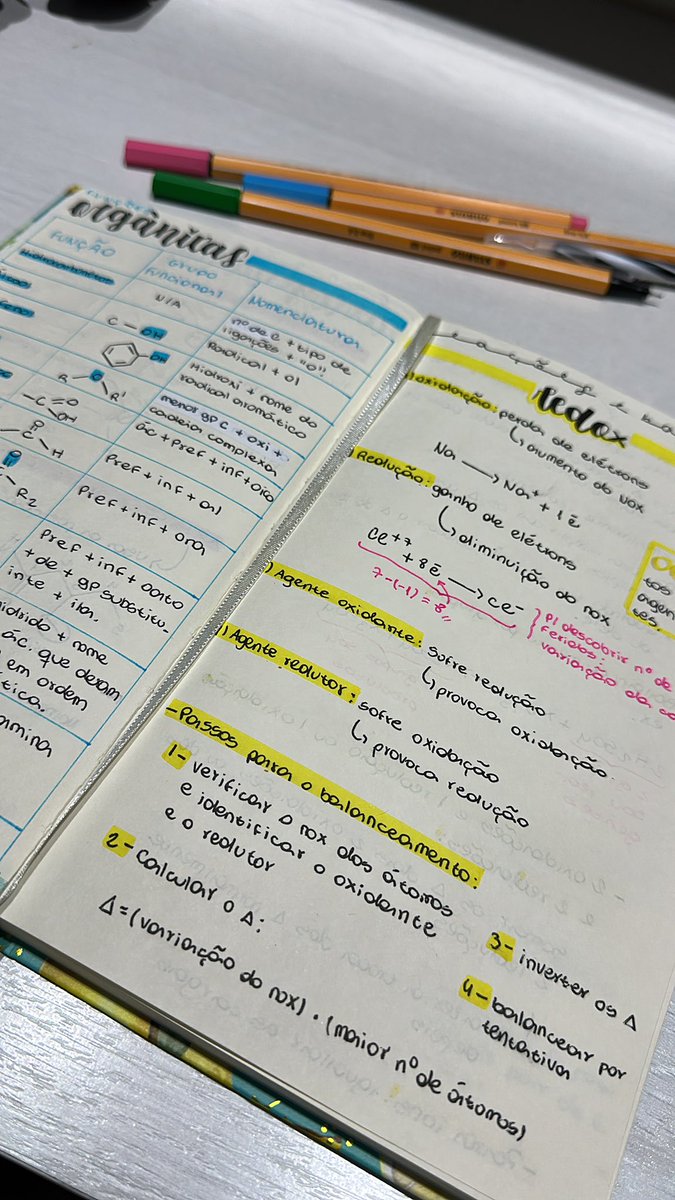 orgânicas
FUNÇÃO
GRUPO
FUNCIONAL
Nomenclatura
U/A
nº de C + tipo de
ligações + "o"
C — OH
Radical + ol
OH
Hidroxi + nome do
radical aromático
R C R'
menor gp C + oxi +
cadeia complexa
—C O
OH
ác + Pref + inf + oico
C H
Pref + inf + al
R2
Pref + inf + ona
Pref + inf + oato
+ de + gp substitu-
inte + ila.
+ nome
ác. que deram
em ordem
redox
oxidação: perda de elétrons
↳ aumento do nox
Na → Na⁺ + 1 ē
Redução: ganho de elétrons
↳ diminuição do nox
Ce⁺⁷ + 8ē → Ce⁻
7-(-1) = 8,,
p/ descobrir nº de
variação da
tos
agen
tes.
Agente oxidante: sofre redução
↳ provoca oxidação.
Agente redutor: sofre oxidação
↳ provoca redução
- Passos para o balanceamento:
1- verificar Δ nox dos átomos
e identificar o oxidante
e o redutor
2- calcular o Δ:
Δ = (variação do nox) · (maior nº de átomos)
3- inverter os Δ
4- balancear por
tentativa